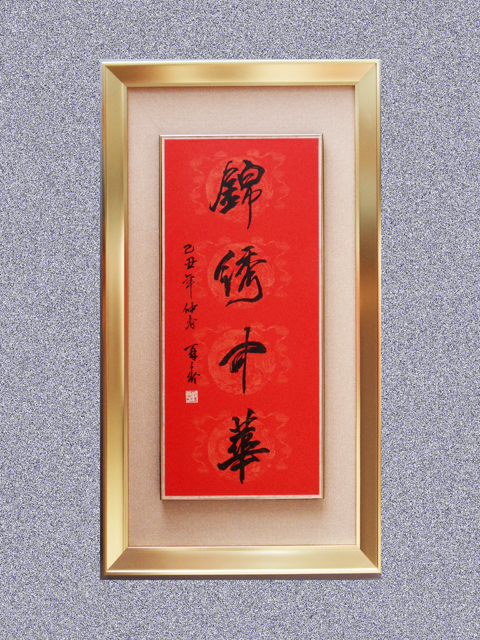 錦绣中華
己丑年仲春